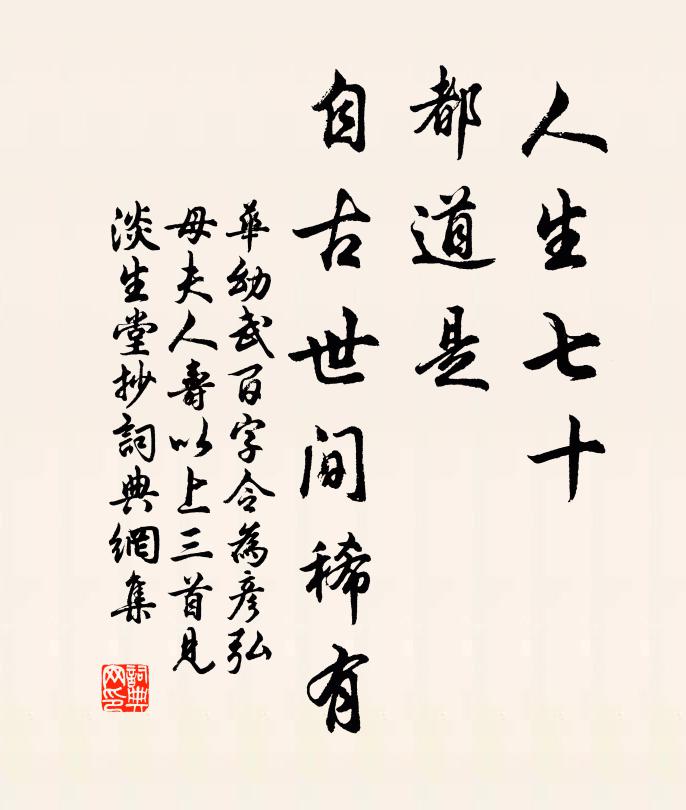 人生七十
都道是
自古世间稀有
華幼武百字令為彦弘
母夫人壽以上三首見
淡生堂抄詞典網集
詞典
网印